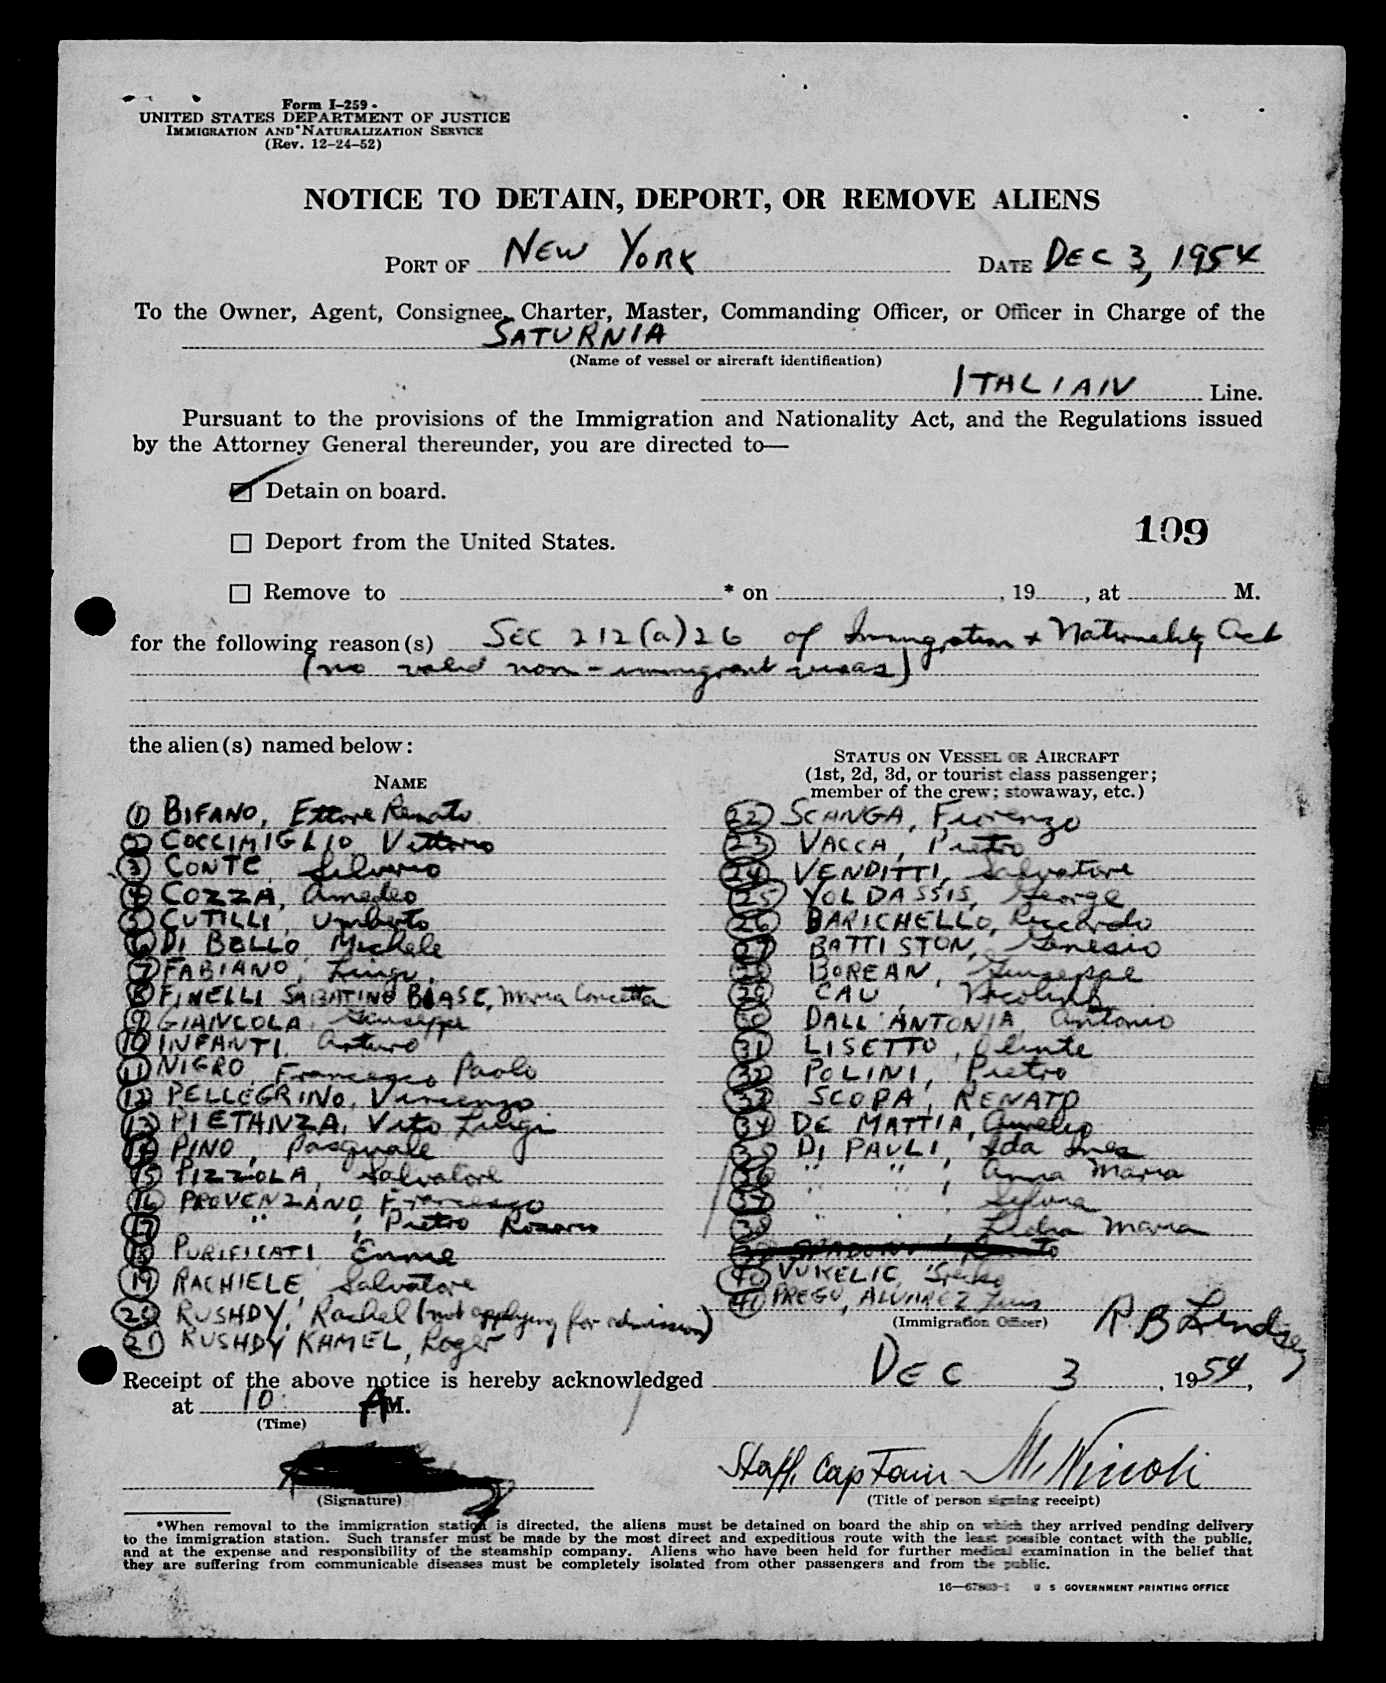 Form I-259
UNITED STATES DEPARTMENT OF JUSTICE
IMMIGRATION AND NATURALIZATION SERVICE
(Rev. 12-24-52)
NOTICE TO DETAIN, DEPORT, OR REMOVE ALIENS
PORT OF NEW YORK DATE DEC 3, 1954
To the Owner, Agent, Consignee, Charter, Master, Commanding Officer, or Officer in Charge of the
SATURNIA
(Name of vessel or aircraft identification)
ITALIAN Line.
Pursuant to the provisions of the Immigration and Nationality Act, and the Regulations issued
by the Attorney General thereunder, you are directed to—
Detain on board.
Deport from the United States.
109
Remove to * on , 19 , at M.
for the following reason(s) SEC 212(a)26 of Immigration & Nationality Act
(no valid non-immigrant visas)
the alien(s) named below:
NAME
STATUS ON VESSEL OR AIRCRAFT
(1st, 2d, 3d, or tourist class passenger;
member of the crew; stowaway, etc.)
(1) BIFANO, Ettore Renato
(2) COCCIMIGLIO Vittorio
(3) CONTE, Silverio
(4) COZZA, Amedeo
(5) CUTILLI, Umberto
(6) DI BELLO, Michele
(7) FABIANO, Luigi
(8) FINELLI SABATINO BIASE, Maria Concetta
(9) GIANCOLA, Giuseppe
(10) INFANTI, Arturo
(11) NIGRO, Francesco Paolo
(12) PELLEGRINO, Vincenzo
(13) PIETANZA, Vito Luigi
(14) PINO, Pasquale
(15) PIZZOLA, Salvatore
(16) PROVENZANO, Francesco
(17) " , Pietro Rosario
(18) PURIFICATI,
(19) RACHIELE, Salvatore
(20) RUSHDY, Rachel (not applying for admission)
(21) RUSHDY KAMEL, Roger
(22) SCANGA, Fiorenzo
(23) VACCA, Pietro
(24) VENDITTI, Salvatore
(25) YOLDASSIS, George
(26) BARICHELLO, Riccardo
(27) BATTISTON, Genesio
(28) BOREAN, Giuseppe
(29) CAU, Nicolino
(30) DALL'ANTONIA, Antonio
(31) LISETTO,
(32) POLINI, Pietro
(33) SCOPA, RENATO
(34) DE MATTIA, Aurelio
(35) DI PAULI, Ida Ines
(36) " " , Anna Maria
(37) " " , Silvia
(38) " " , Maria
(40) VUKELIC, Srecko
(41) PREGO, ALVAREZ Luis
(Immigration Officer) R. B. Lindsey
Receipt of the above notice is hereby acknowledged DEC 3, 1954,
at 10 A M.
(Time)
Staff Captain M. Niccoli
(Signature)
(Title of person signing receipt)
*When removal to the immigration station is directed, the aliens must be detained on board the ship on which they arrived pending delivery
to the immigration station. Such transfer must be made by the most direct and expeditious route with the least possible contact with the public,
and at the expense and responsibility of the steamship company. Aliens who have been held for further medical examination in the belief that
they are suffering from communicable diseases must be completely isolated from other passengers and from the public.
U S GOVERNMENT PRINTING OFFICE